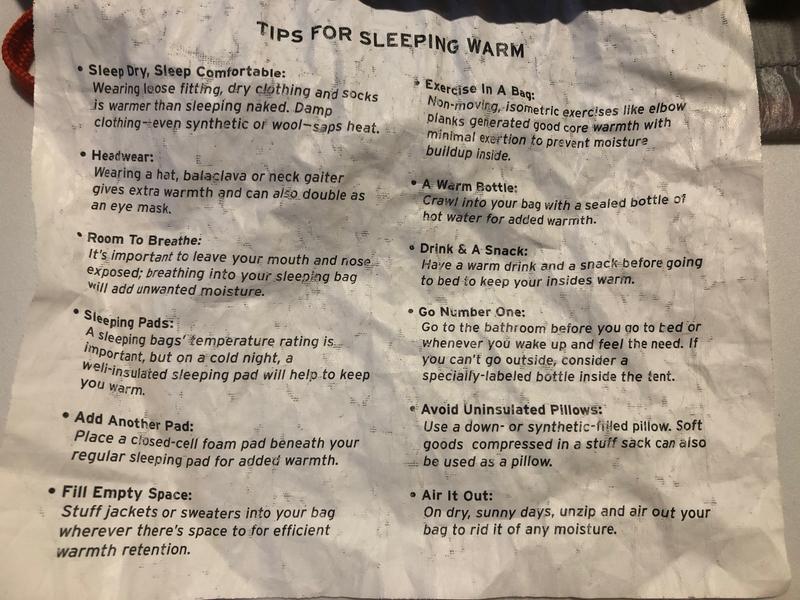 TIPS FOR SLEEPING WARM
• Sleep Dry, Sleep Comfortable:
Wearing loose fitting, dry clothing and socks
is warmer than sleeping naked. Damp
clothing—even synthetic or wool—saps heat.
• Headwear:
Wearing a hat, balaclava or neck gaiter
gives extra warmth and can also double as
an eye mask.
• Room To Breathe:
It's important to leave your mouth and nose
exposed; breathing into your sleeping bag
will add unwanted moisture.
• Sleeping Pads:
A sleeping bags' temperature rating is
important, but on a cold night, a
well-insulated sleeping pad will help to keep
you warm.
• Add Another Pad:
Place a closed-cell foam pad beneath your
regular sleeping pad for added warmth.
• Fill Empty Space:
Stuff jackets or sweaters into your bag
wherever there's space to for efficient
warmth retention.
• Exercise In A Bag:
Non-moving, isometric exercises like elbow
planks generated good core warmth with
minimal exertion to prevent moisture
buildup inside.
• A Warm Bottle:
Crawl into your bag with a sealed bottle of
hot water for added warmth.
• Drink & A Snack:
Have a warm drink and a snack before going
to bed to keep your insides warm.
• Go Number One:
Go to the bathroom before you go to bed or
whenever you wake up and feel the need. If
you can't go outside, consider a
specially-labeled bottle inside the tent.
• Avoid Uninsulated Pillows:
Use a down- or synthetic-filled pillow. Soft
goods compressed in a stuff sack can also
be used as a pillow.
• Air It Out:
On dry, sunny days, unzip and air out your
bag to rid it of any moisture.